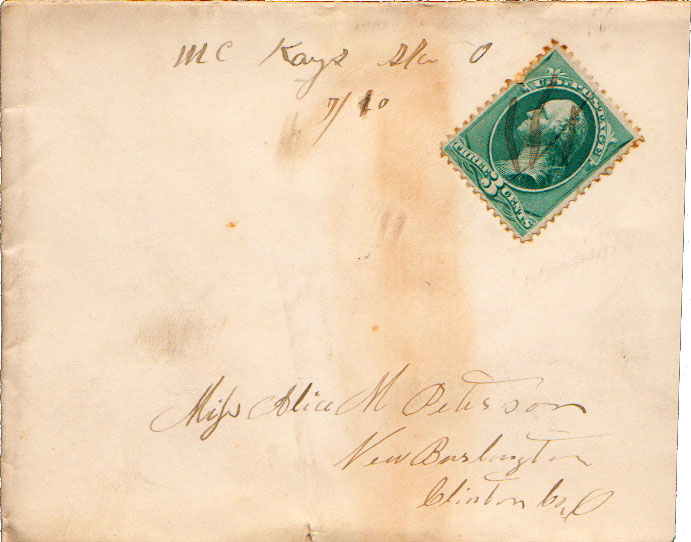 Mc Kays Sta O
7/10
U.S. POSTAGE
THREE 3 CENTS
Miss Alice M Peterson
New Burlington
Clinton Co O